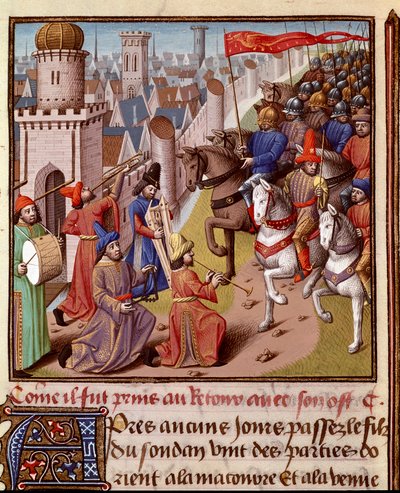 Cõme il fut prins au Retour auec son ost C.
Apres aucuns Jours passez le filz
du soudan vint des parties do
rient a la macoure Et a la venue